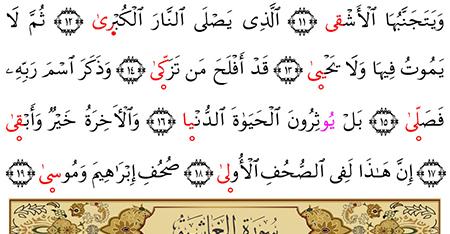 وَيَتَجَنَّبُهَا ٱلْأَشْقَى ﴿١١﴾ ٱلَّذِى يَصْلَى ٱلنَّارَ ٱلْكُبْرِىٰ ﴿١٢﴾ ثُمَّ لَا
يَمُوتُ فِيهَا وَلَا يَحْيِىٰ ﴿١٣﴾ قَدْ أَفْلَحَ مَن تَزَكِّىٰ ﴿١٤﴾ وَذَكَرَ ٱسْمَ رَبِّهِۦ
فَصَلِّىٰ ﴿١٥﴾ بَلْ يُوثِرُونَ ٱلْحَيَوٰةَ ٱلدُّنْيا ﴿١٦﴾ وَٱلْأَخِرَةُ خَيْرٌ وَأَبْقِىٰ
﴿١٧﴾ إِنَّ هَٰذَا لَفِى ٱلصُّحُفِ ٱلْأُولِىٰ ﴿١٨﴾ صُحُفِ إِبْرَٰهِيمَ وَمُوسِىٰ ﴿١٩﴾
سُورَةُ الغَاشِيَةِ